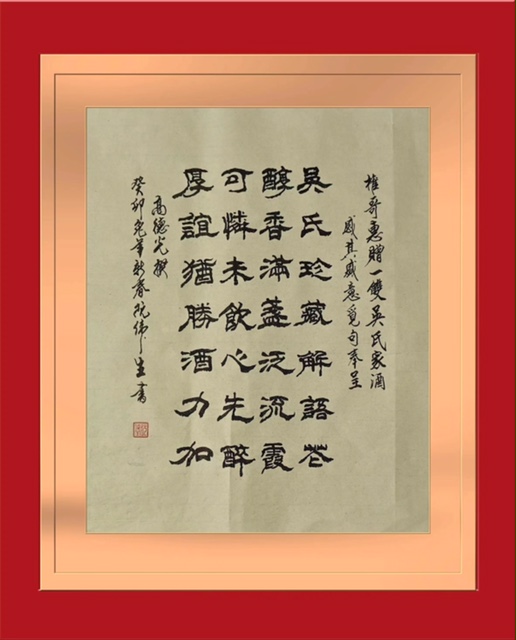 權哥惠贈一雙吳氏家酒
感其盛意覓句奉呈
吳氏珍藏解語花
醇香滿盞泛流霞
可憐未飲心先醉
厚誼猶勝酒力加
高德光撰
癸卯兔年新春阮偉生書